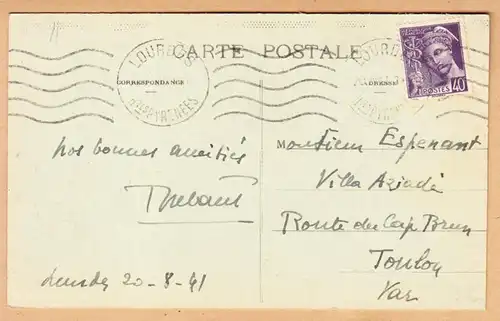 CARTE POSTALE
LOURDES
Htes PYRENEES
LOURDES
POSTES 40
CORRESPONDANCE
ADRESSE
Nos bonnes amitiés
Lourdes 20-8-41
Monsieur Esperant
Villa Aziadé
Route du Cap Brun
Toulon
Var